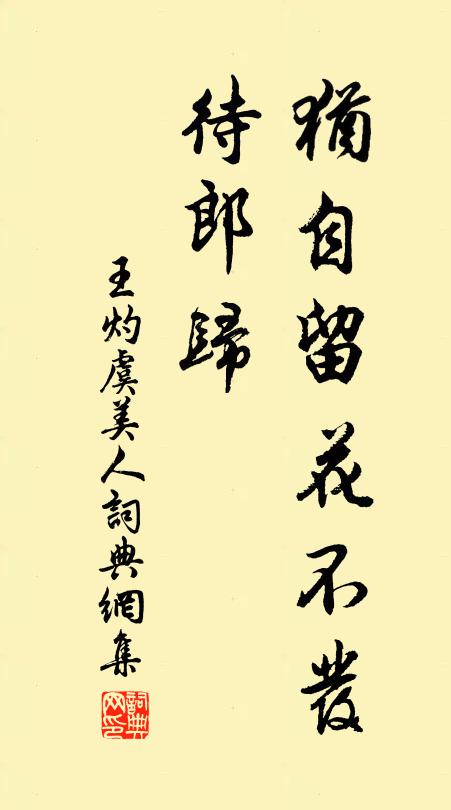 猶自留花不發
待郎歸
王灼虞美人詞典網集
詞典網印